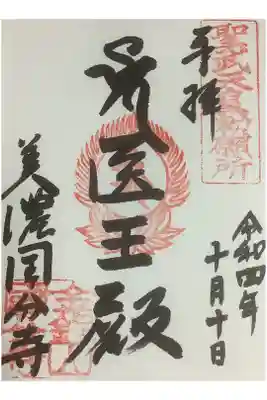 聖武天皇勅願所
奉拝
令和四年
十月十日
医王殿
美濃国分寺